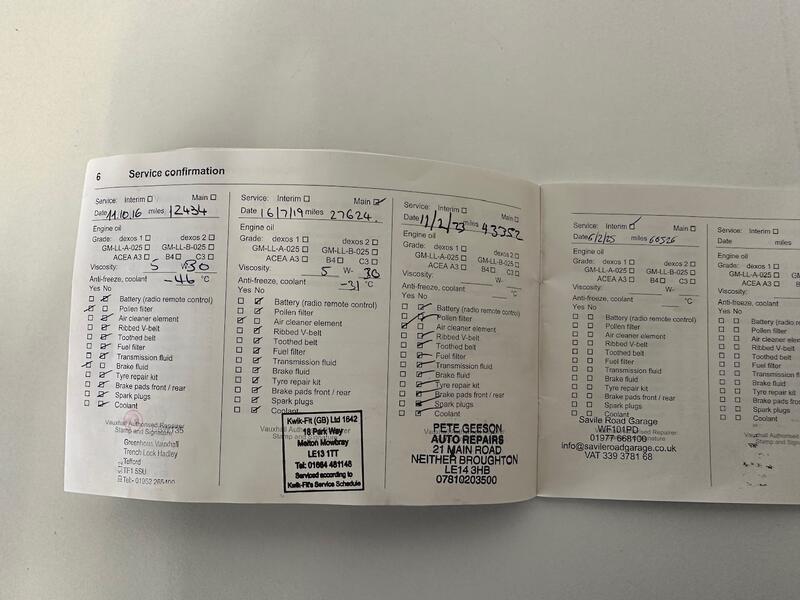 6 Service confirmation
Service: Interim Main
Date 11.10.16 miles 12434
Engine oil
Grade: dexos 1 dexos 2
GM-LL-A-025 GM-LL-B-025
ACEA A3 B4 C3
Viscosity: 5 W30
Anti-freeze, coolant -46 °C
Yes No
Battery (radio remote control)
Pollen filter
Air cleaner element
Ribbed V-belt
Toothed belt
Fuel filter
Transmission fluid
Brake fluid
Tyre repair kit
Brake pads front / rear
Spark plugs
Coolant
Vauxhall Authorised Repairer
Stamp and Signature
Greenhous Vauxhall
Trench Lock Hadley
Telford
TF1 5SU
Service: Interim Main
Date 16/7/19 miles 27624
Engine oil
Grade: dexos 1 dexos 2
GM-LL-A-025 GM-LL-B-025
ACEA A3 B4 C3
Viscosity: 5 W- 30
Anti-freeze, coolant -31 °C
Yes No
Battery (radio remote control)
Pollen filter
Air cleaner element
Ribbed V-belt
Toothed belt
Fuel filter
Transmission fluid
Brake fluid
Tyre repair kit
Brake pads front / rear
Spark plugs
Coolant
Kwik-Fit (GB) Ltd 1642
18 Park Way
Melton Mowbray
LE13 1TT
Tel: 01664 481148
Serviced according to
Kwik-Fit's Service Schedule
Service: Interim Main
Date 11/2/23 miles 43352
Engine oil
Grade: dexos 1 dexos 2
GM-LL-A-025 GM-LL-B-025
ACEA A3 B4 C3
Viscosity: W-
Anti-freeze, coolant °C
Yes No
Battery (radio remote control)
Pollen filter
Air cleaner element
Ribbed V-belt
Toothed belt
Fuel filter
Transmission fluid
Brake fluid
Tyre repair kit
Brake pads front / rear
Spark plugs
Coolant
PETE GEESON
AUTO REPAIRS
21 MAIN ROAD
NEITHER BROUGHTON
LE14 3HB
07810203500
Service: Interim Main
Date 6/2/25 miles 60526
Engine oil
Grade: dexos 1 dexos 2
GM-LL-A-025 GM-LL-B-025
ACEA A3 B4 C3
Viscosity: W-
Anti-freeze, coolant °C
Yes No
Battery (radio remote control)
Pollen filter
Air cleaner element
Ribbed V-belt
Toothed belt
Fuel filter
Transmission fluid
Brake fluid
Tyre repair kit
Brake pads front / rear
Spark plugs
Coolant
Savile Road Garage
WF101PD
01977 668100
info@savileroadgarage.co.uk
VAT 339 3781 68
Service: Interim
Date miles
Engine oil
Grade: dexos 1
GM-LL-A-025
ACEA A3
Viscosity:
Anti-freeze, coolant
Yes No
Battery (radio
Pollen filter
Air cleaner
Ribbed V-belt
Toothed belt
Fuel filter
Transmission
Brake fluid
Tyre repair kit
Brake pads
Spark plugs
Coolant
Vauxhall